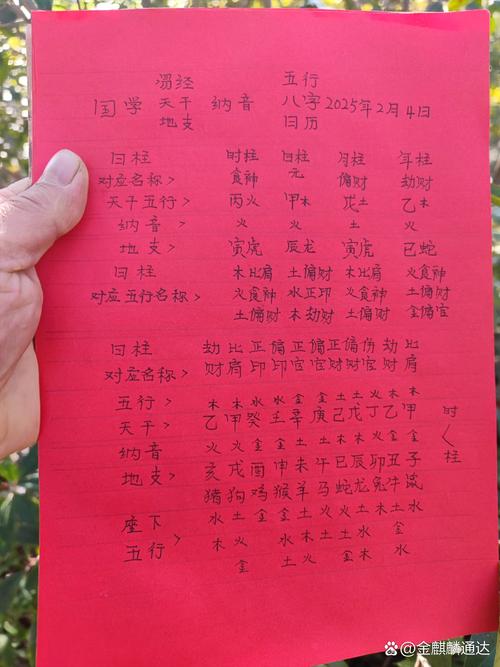 易经 五行
国学 天干 纳音 八字 2025年2月4日
地支 日历
日柱 时柱 日柱 月柱 年柱
对应名称> 食神 元 偏财 劫财
天干五行> 丙火 甲木 戊土 乙木
纳音> 火 火 土 火
地支> 寅虎 辰龙 寅虎 巳蛇
日柱 木比肩 土偏财 木比肩 火食神
对应五行名称> 火食神 水正印 火食神 土偏财
土偏财 木劫财 土偏财 金偏官
日柱 劫 比 正 偏 正 偏 正 偏 伤 劫 比
对应名称> 财 肩 印 印 官 官 财 财 官 财 肩
五行> 木 木 水 水 金 金 土 土 火 木 木
天干> 乙 甲 癸 壬 辛 庚 己 戊 丁 乙 甲
纳音> 火 火 金 金 土 土 木 木 火 金 金
地支> 亥 戌 酉 申 未 午 巳 辰 卯 丑 子
猪 狗 鸡 猴 羊 马 蛇 龙 兔 牛 鼠
时く柱
座下 水 土 金 金 土 火 火 土 木 土 水
五行> 木 火 水 木 土 土 水 金
金 土 火 金 木 水
@金麒麟通达